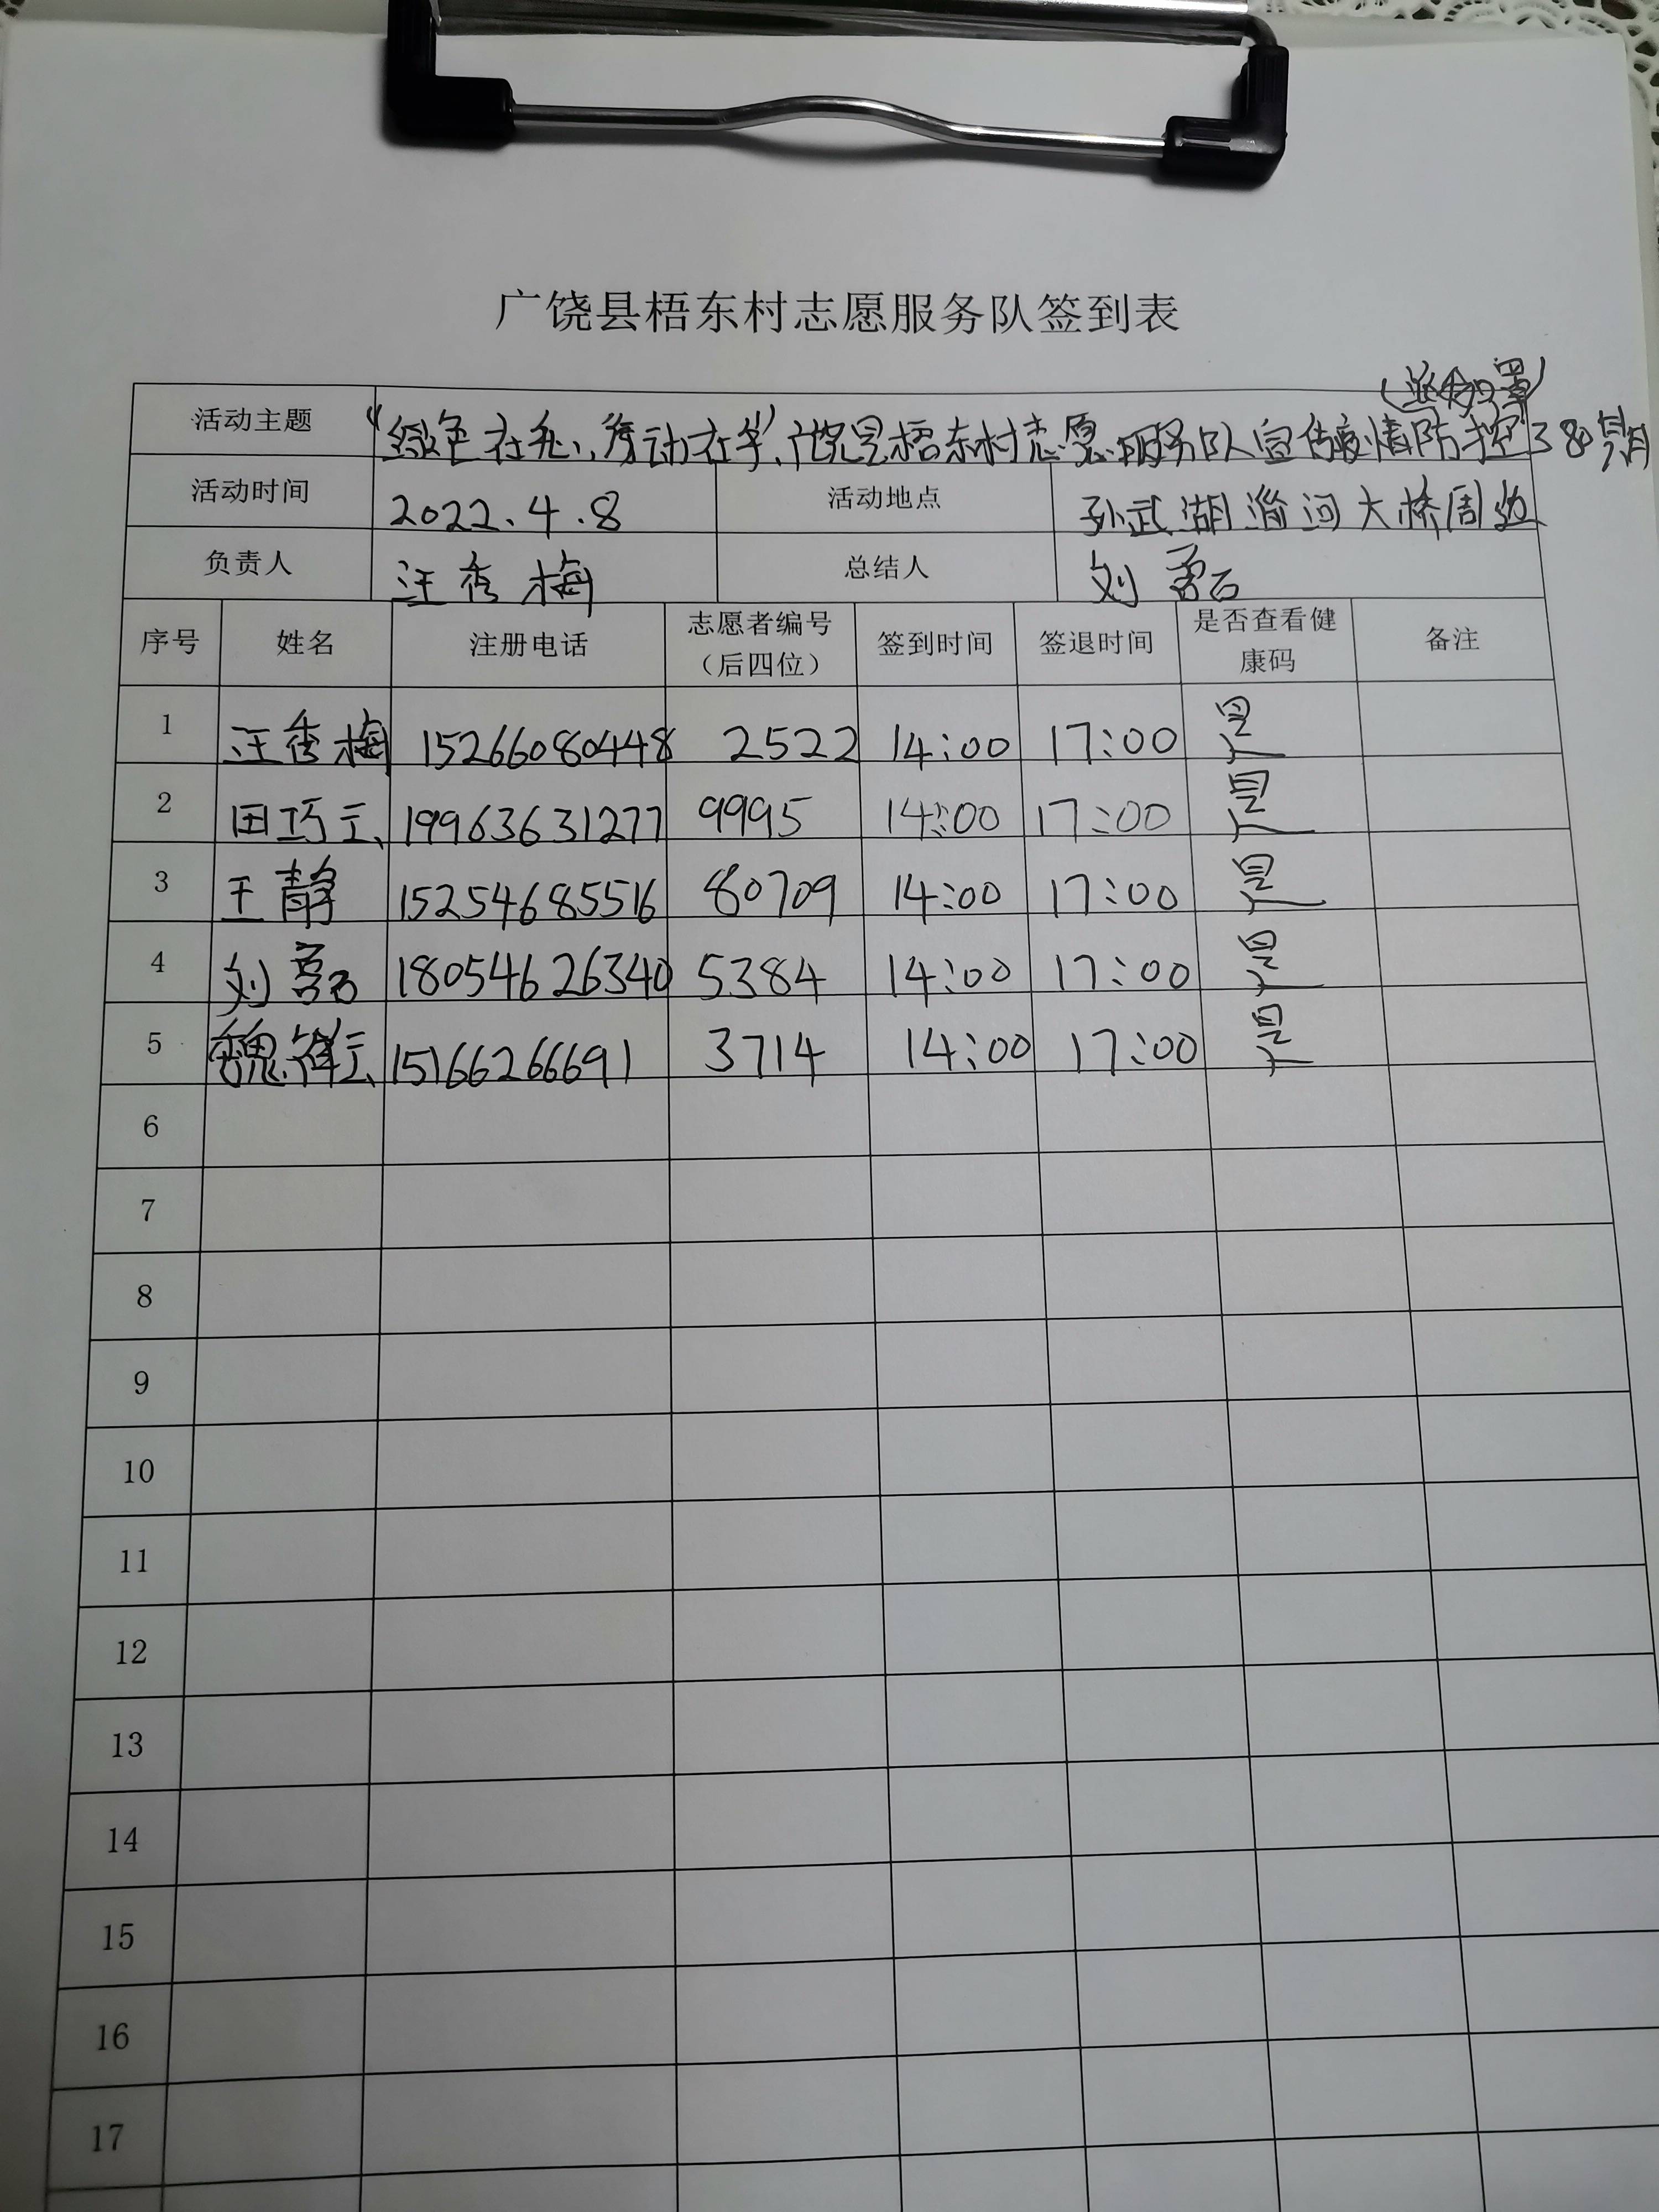 广饶县梧东村志愿服务队签到表
活动主题 “绿色在心、劳动在手”广饶县梧东村志愿服务队宣传疫情防控380期 (发口罩)
活动时间 2022.4.8 活动地点 孙武湖淄河大桥周边
负责人 汪秀梅 总结人 刘
序号 姓名 注册电话 志愿者编号（后四位） 签到时间 签退时间 是否查看健康码 备注
1 汪秀梅 15266080448 2522 14:00 17:00 是
2 田巧云 19963631277 9995 14:00 17:00 是
3 王静 15254685516 80709 14:00 17:00 是
4 刘 18054626340 5384 14:00 17:00 是
5 魏云 15166266691 3714 14:00 17:00 是
6
7
8
9
10
11
12
13
14
15
16
17